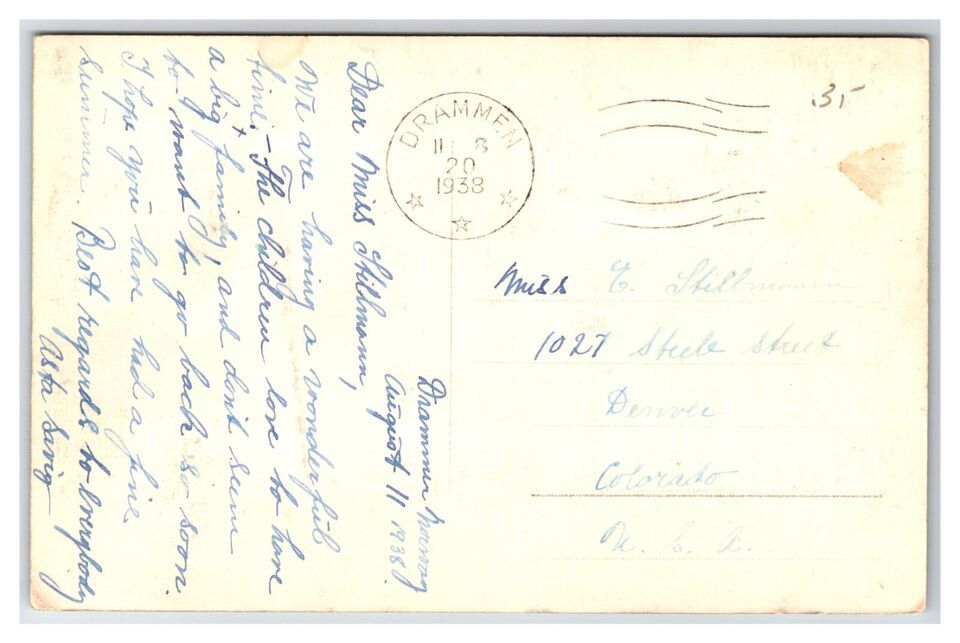 Drammen Norway
August 11 1938.
Dear Miss Stillmann,
We are having a wonderful
time. - The children love to have
a big family, and don't seem
to want to go back so soon.
I hope you have had a fine
summer. Best regards to everybody
Asta
DRAMMEN
11 8
20
1938
35
Miss E. Stillmann
1027 Steele Street
Denver
Colorado
U. S. A.